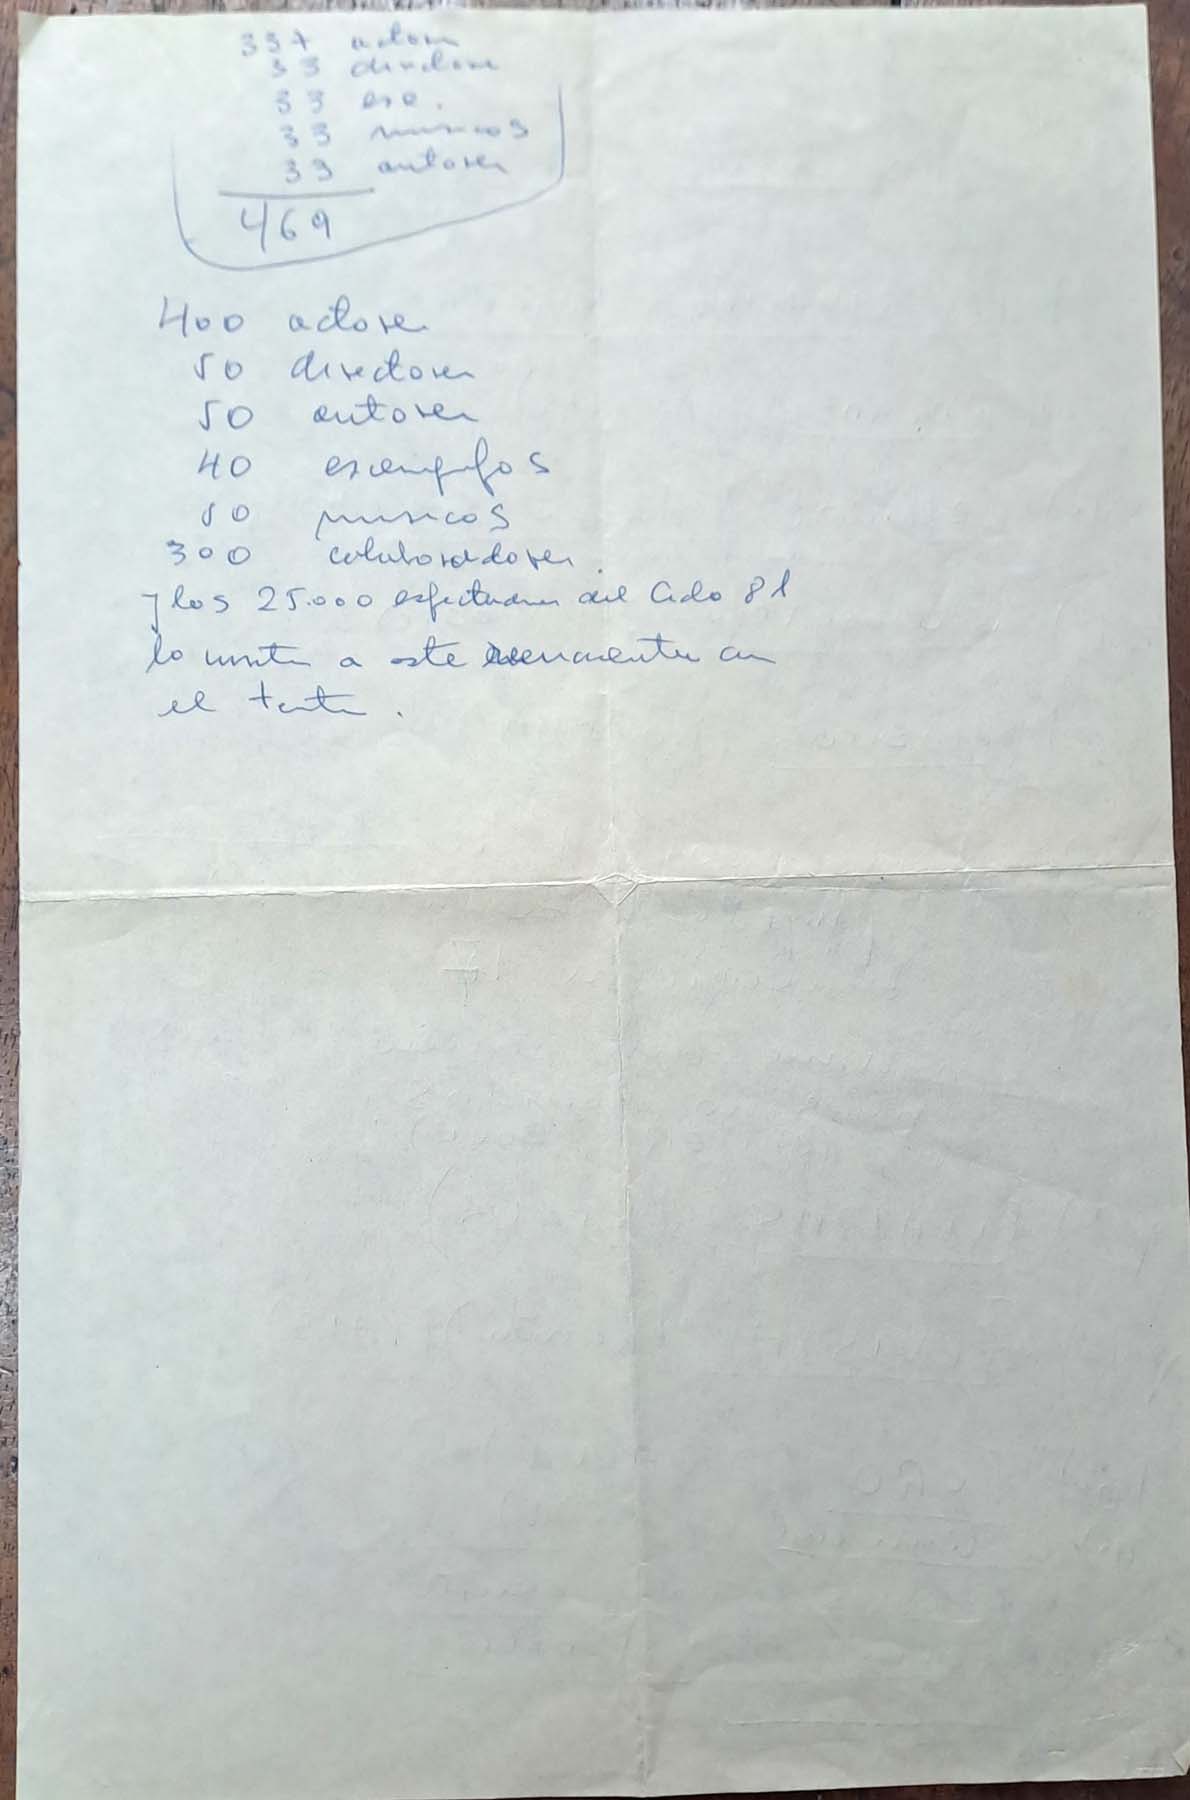 337 actores
33 directores
33 esc.
33 musicos
33 autores
469
400 actores
50 directores
50 autores
40 escenografos
50 musicos
300 colaboradores.
y los 25.000 espectadores del Ciclo 81
lo invitan a este reencuentro con
el teatro.